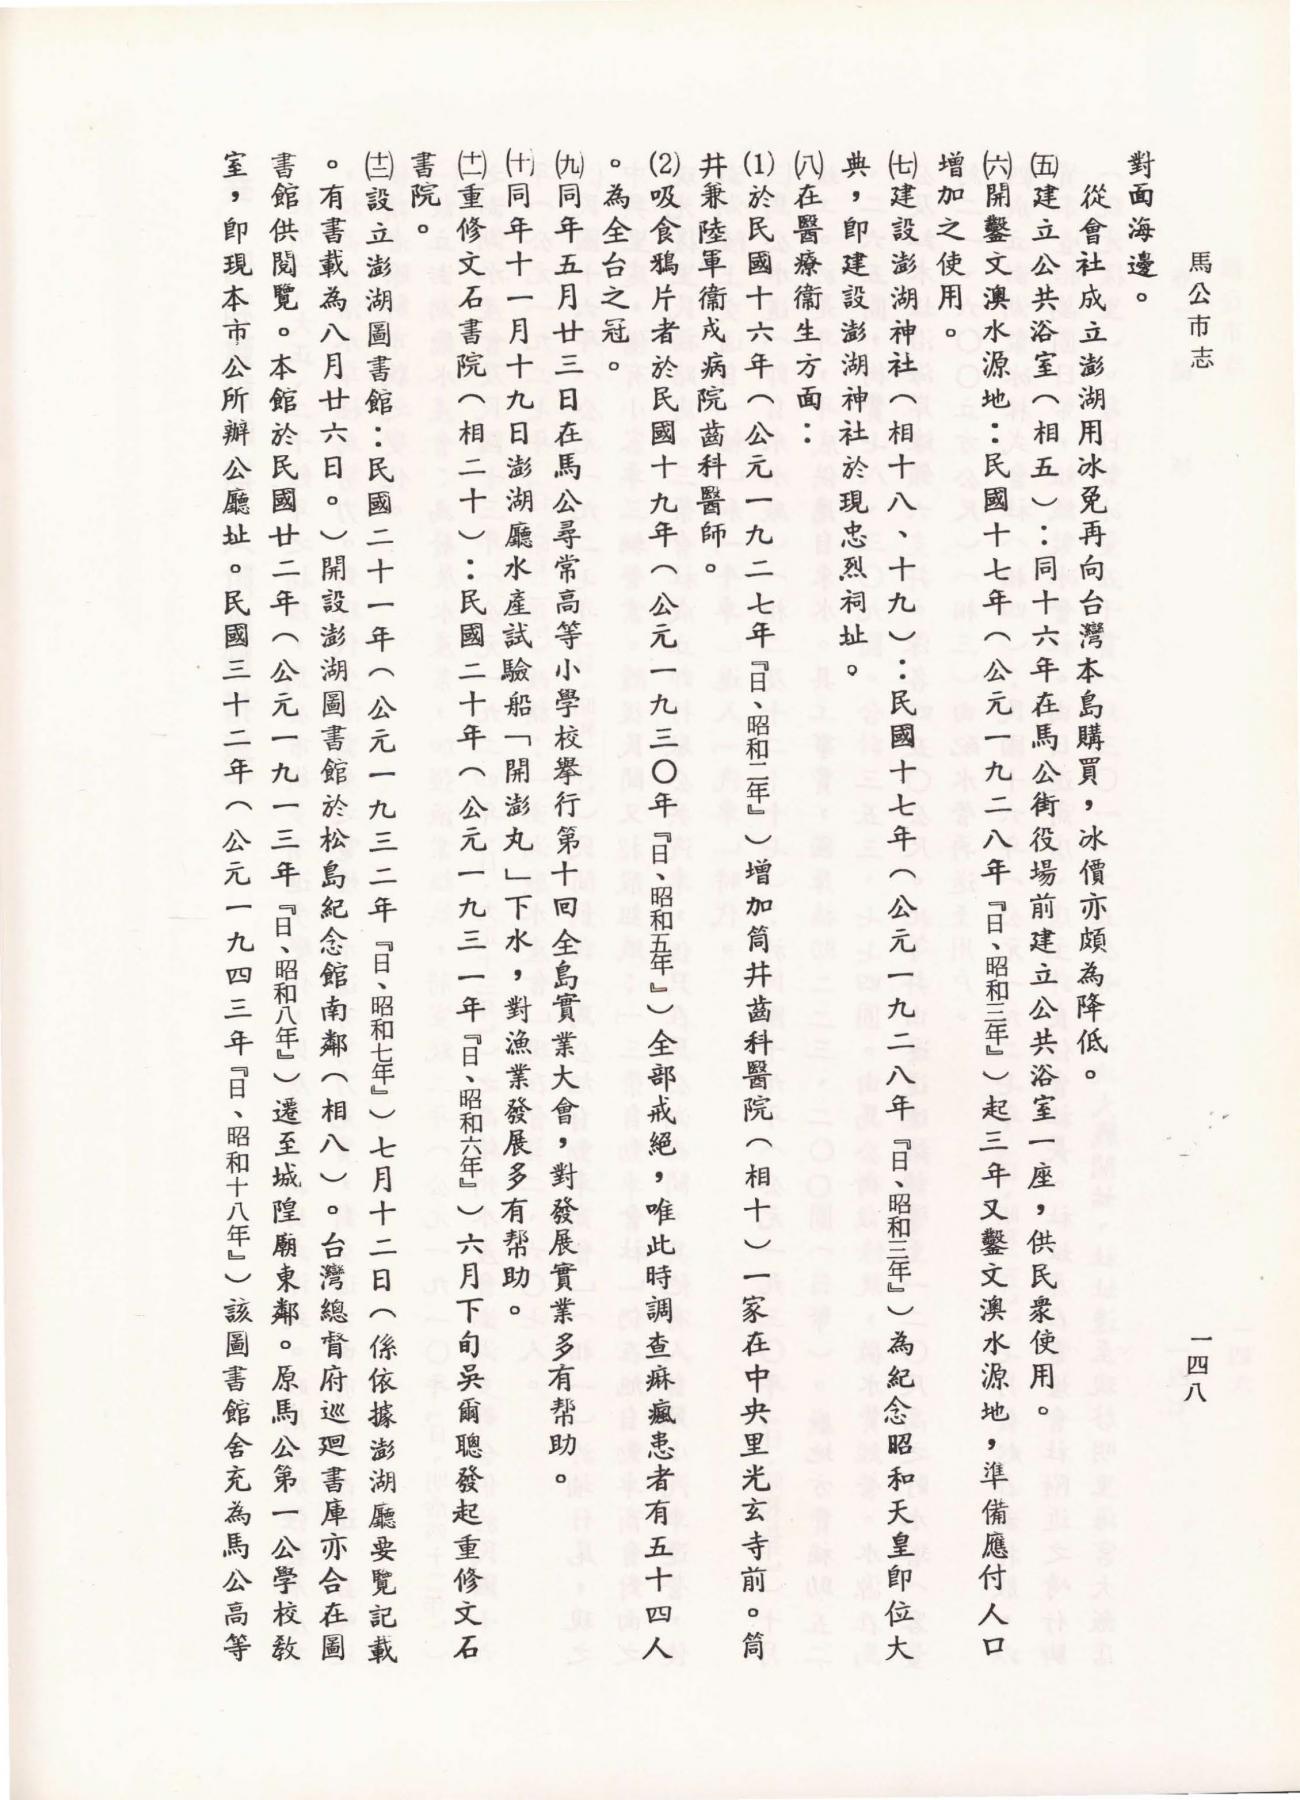 馬公市志
一四八
對面海邊。
從會社成立澎湖用冰免再向台灣本島購買，冰價亦頗為降低。
㈤建立公共浴室（相五）：同十六年在馬公街役場前建立公共浴室一座，供民衆使用。
㈥開鑿文澳水源地：民國十七年（公元一九二八年『日、昭和三年』）起三年又鑿文澳水源地，準備應付人口
增加之使用。
㈦建設澎湖神社（相十八、十九）：民國十七年（公元一九二八年『日、昭和三年』）為紀念昭和天皇即位大
典，即建設澎湖神社於現忠烈祠址。
㈧在醫療衞生方面：
⑴於民國十六年（公元一九二七年『日、昭和二年』）增加筒井齒科醫院（相十）一家在中央里光玄寺前。筒
井兼陸軍衞戍病院齒科醫師。
⑵吸食鴉片者於民國十九年（公元一九三〇年『日、昭和五年』）全部戒絕，唯此時調查痲瘋患者有五十四人
。為全台之冠。
㈨同年五月廿三日在馬公尋常高等小學校舉行第十回全島實業大會，對發展實業多有帮助。
㈩同年十一月十九日澎湖廳水產試驗船「開澎丸」下水，對漁業發展多有帮助。
(十一)重修文石書院（相二十）：民國二十年（公元一九三一年『日、昭和六年』）六月下旬吳爾聰發起重修文石
書院。
(十二)設立澎湖圖書館：民國二十一年（公元一九三二年『日、昭和七年』）七月十二日（係依據澎湖廳要覽記載
。有書載為八月廿六日。）開設澎湖圖書館於松島紀念館南鄰（相八）。台灣總督府巡廻書庫亦合在圖
書館供閱覽。本館於民國廿二年（公元一九一三年『日、昭和八年』）遷至城隍廟東鄰。原馬公第一公學校教
室，即現本市公所辦公廳址。民國三十二年（公元一九四三年『日、昭和十八年』）該圖書館舍充為馬公高等